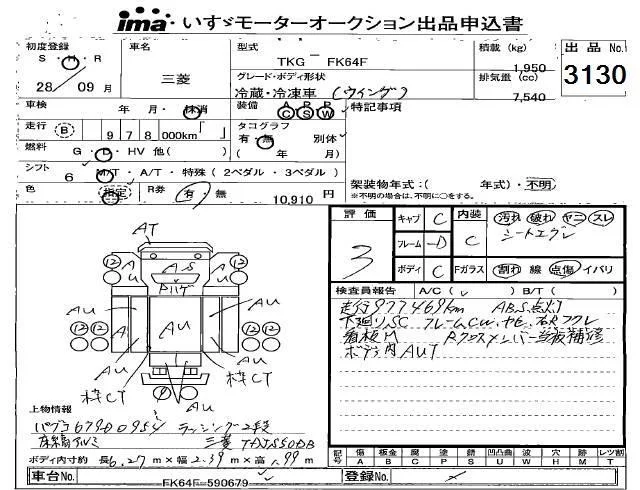 ima いすゞモーターオークション出品申込書
初度登録 車名 型式 積載 (kg) 出品 No.
S・H・R TKG - FK64F 1,950 3130
28/09月 三菱 グレード・ボディ形状 排気量 (cc)
冷蔵・冷凍車 (ウイング) 7,540
車検 年 月・抹消 装備 A P P 特記事項
C S W
走行 B 978000km タコグラフ
有・無 別体
燃料 G・D・HV 他( ) ( 年 月)
シフト 6 M/T・A/T・特殊 (2ペダル・3ペダル) 架装物年式:( 年式)・不明
※不明の場合は、不明に○をする。
色 指定 R券 有 無 10,910 円
評価 キャブ C 内装 汚れ 破れ ヤニ スレ
3 フレーム D C シートエグレ
ボディ C Fガラス 割れ 線 点傷 イバリ
検査員報告 A/C( ) B/T( )
走行977469km ABS点灯
下廻りSC フレームCW
看板M Rクロスメンバー当板補修
ボディ内AUT
AT
12 A A S A 12
U U
Pハゲ
AU AU
12 A AU 12
AU AU
枠CT 枠CT
AU
上物情報
ラッシング2段
三菱
ボディ内寸約 長6.27m×幅2.39m×高1.99m
記号 傷 板金 腐 塗 錆 凹凸曲 波 穴 跡 レツ割
A B C P S U W H M T
車台No. FK64F-590679 登録No.